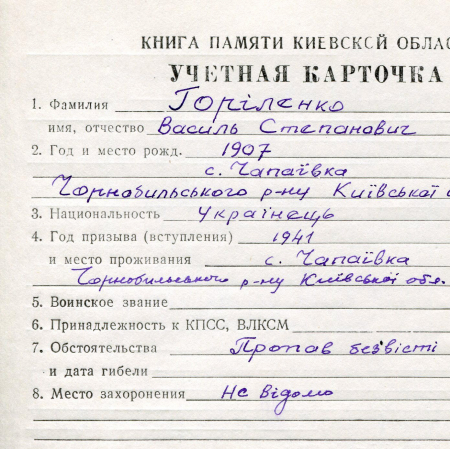 КНИГА ПАМЯТИ КИЕВСКОЙ ОБЛАС
УЧЕТНАЯ КАРТОЧКА
1. Фамилия Горіленко
имя, отчество Василь Степанович
2. Год и место рожд. 1907
с. Чапаївка
Чорнобильського р-ну Київської о
3. Национальность Українець
4. Год призыва (вступления) 1941
и место проживания с. Чапаївка
Чорнобильського р-ну Київської обл.
5. Воинское звание
6. Принадлежность к КПСС, ВЛКСМ
7. Обстоятельства Пропав безвісті
и дата гибели
8. Место захоронения Не відомо